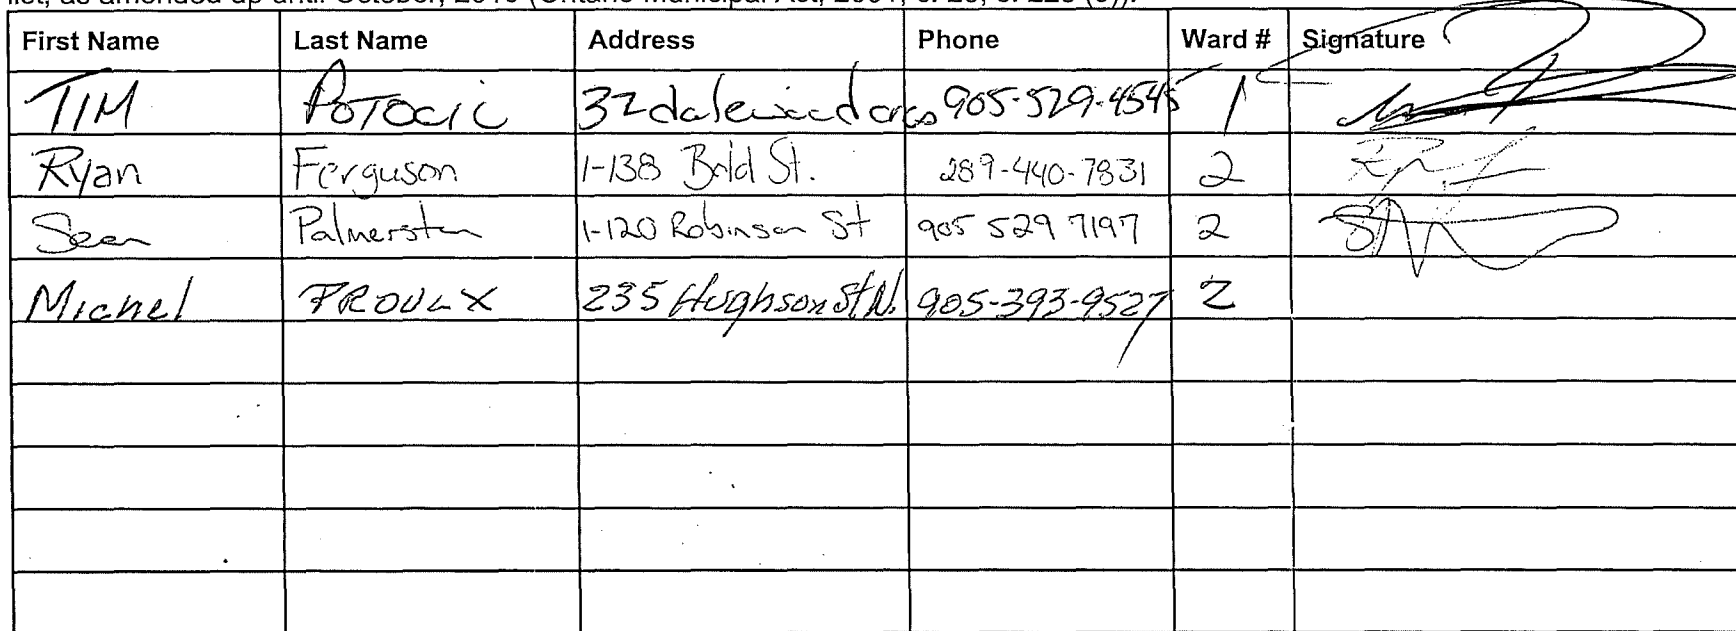 First Name Last Name Address Phone Ward # Signature
TIM POTOCIC 32 dalewood cres 905-529-4545 1
Ryan Ferguson 1-138 Bold St. 289-440-7831 2
Sean Palmerston 1-120 Robinson St 905 529 7197 2
Michel PROULX 235 Hughson St N. 905-393-9527 2